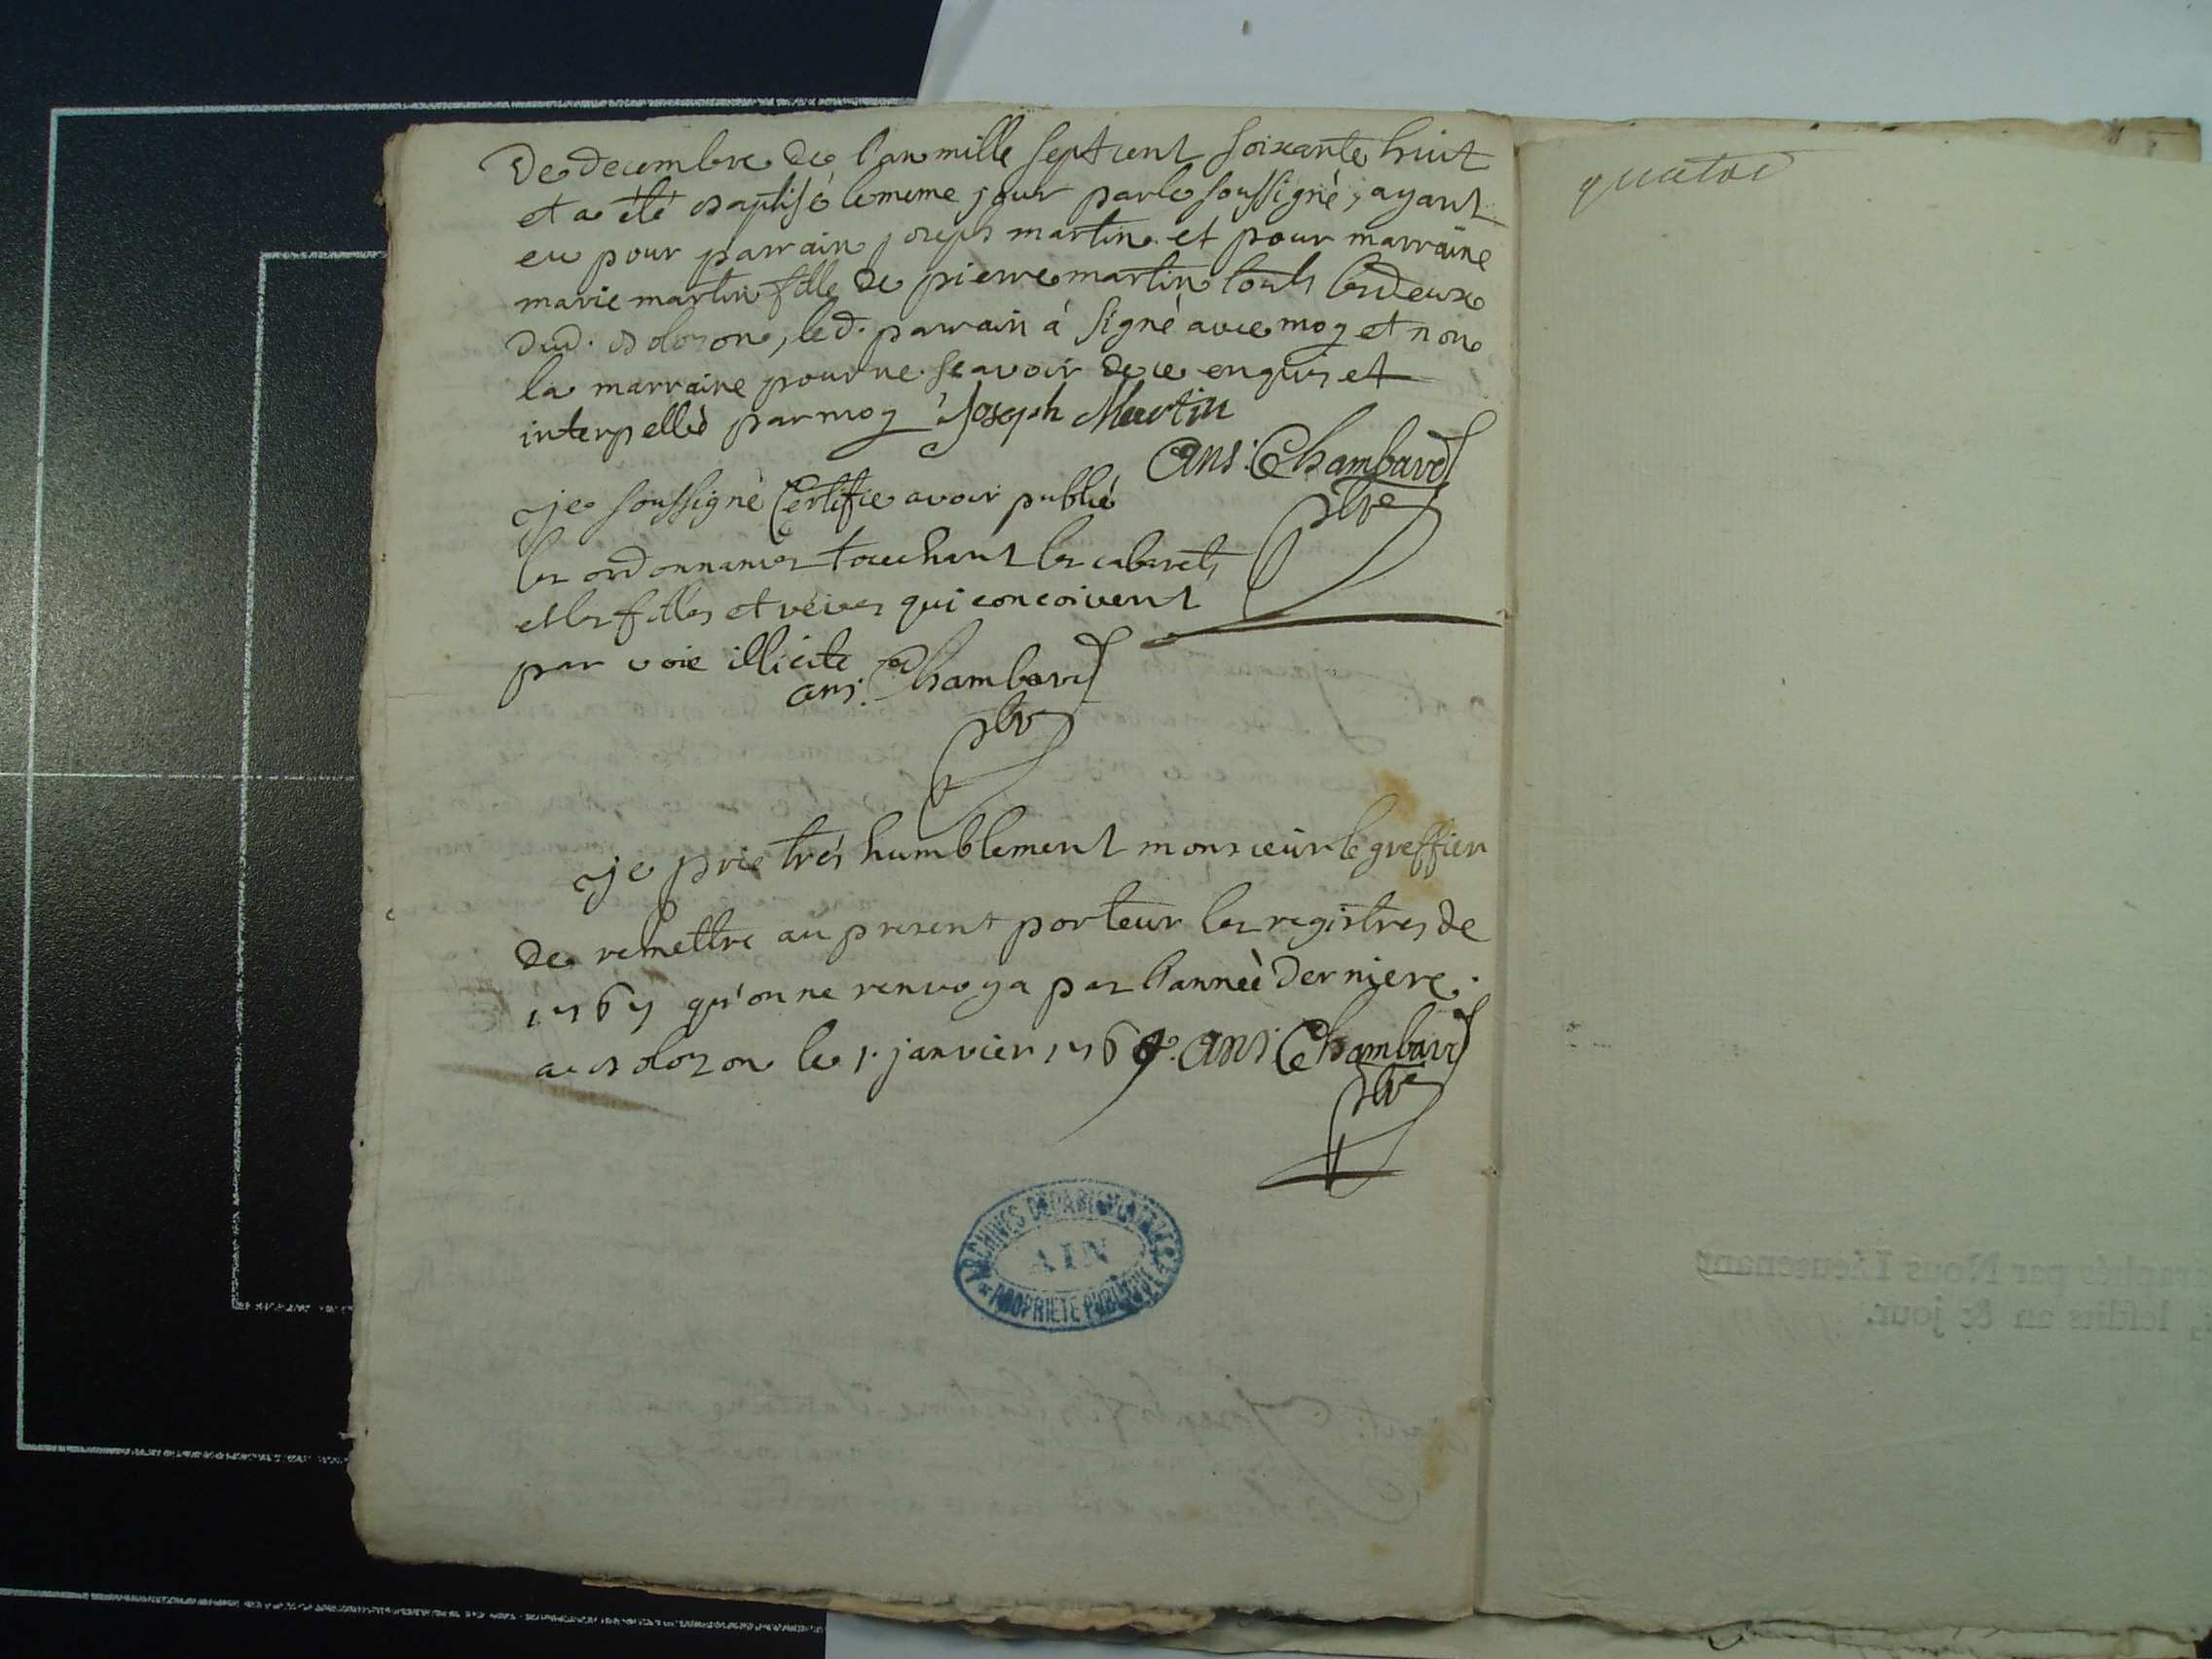 De decembre de l'an mille sept cent soixante huit
et a été baptisé le meme jour par le soussigné, ayant
eu pour parrain joseph martin et pour marraine
marie martin fille de pierre martin touts les deux
dud. bolozon, led. parrain à signé avec moy et non
la marraine pour ne scavoir de ce enquis et
interpellés par moy Joseph Martin
ans: Chambard
ptre
je soussigné Certifie avoir publié
les ordonnances touchant les cabarets
et les filles et veives qui concoivent
par voie illicite
ans: Chambard
ptre
je prie trés humblement monsieur le greffier
de remettre au present porteur les registres de
1767 qu'on ne renvoya pas l'année derniere.
a bolozon le 1. janvier 1769. ans: Chambard
ptre
ARCHIVES DÉPARTEMENTALES
AIN
PROPRIÉTÉ PUBLIQUE
quatre
Nous Lieutenant
lesdits an & jour.